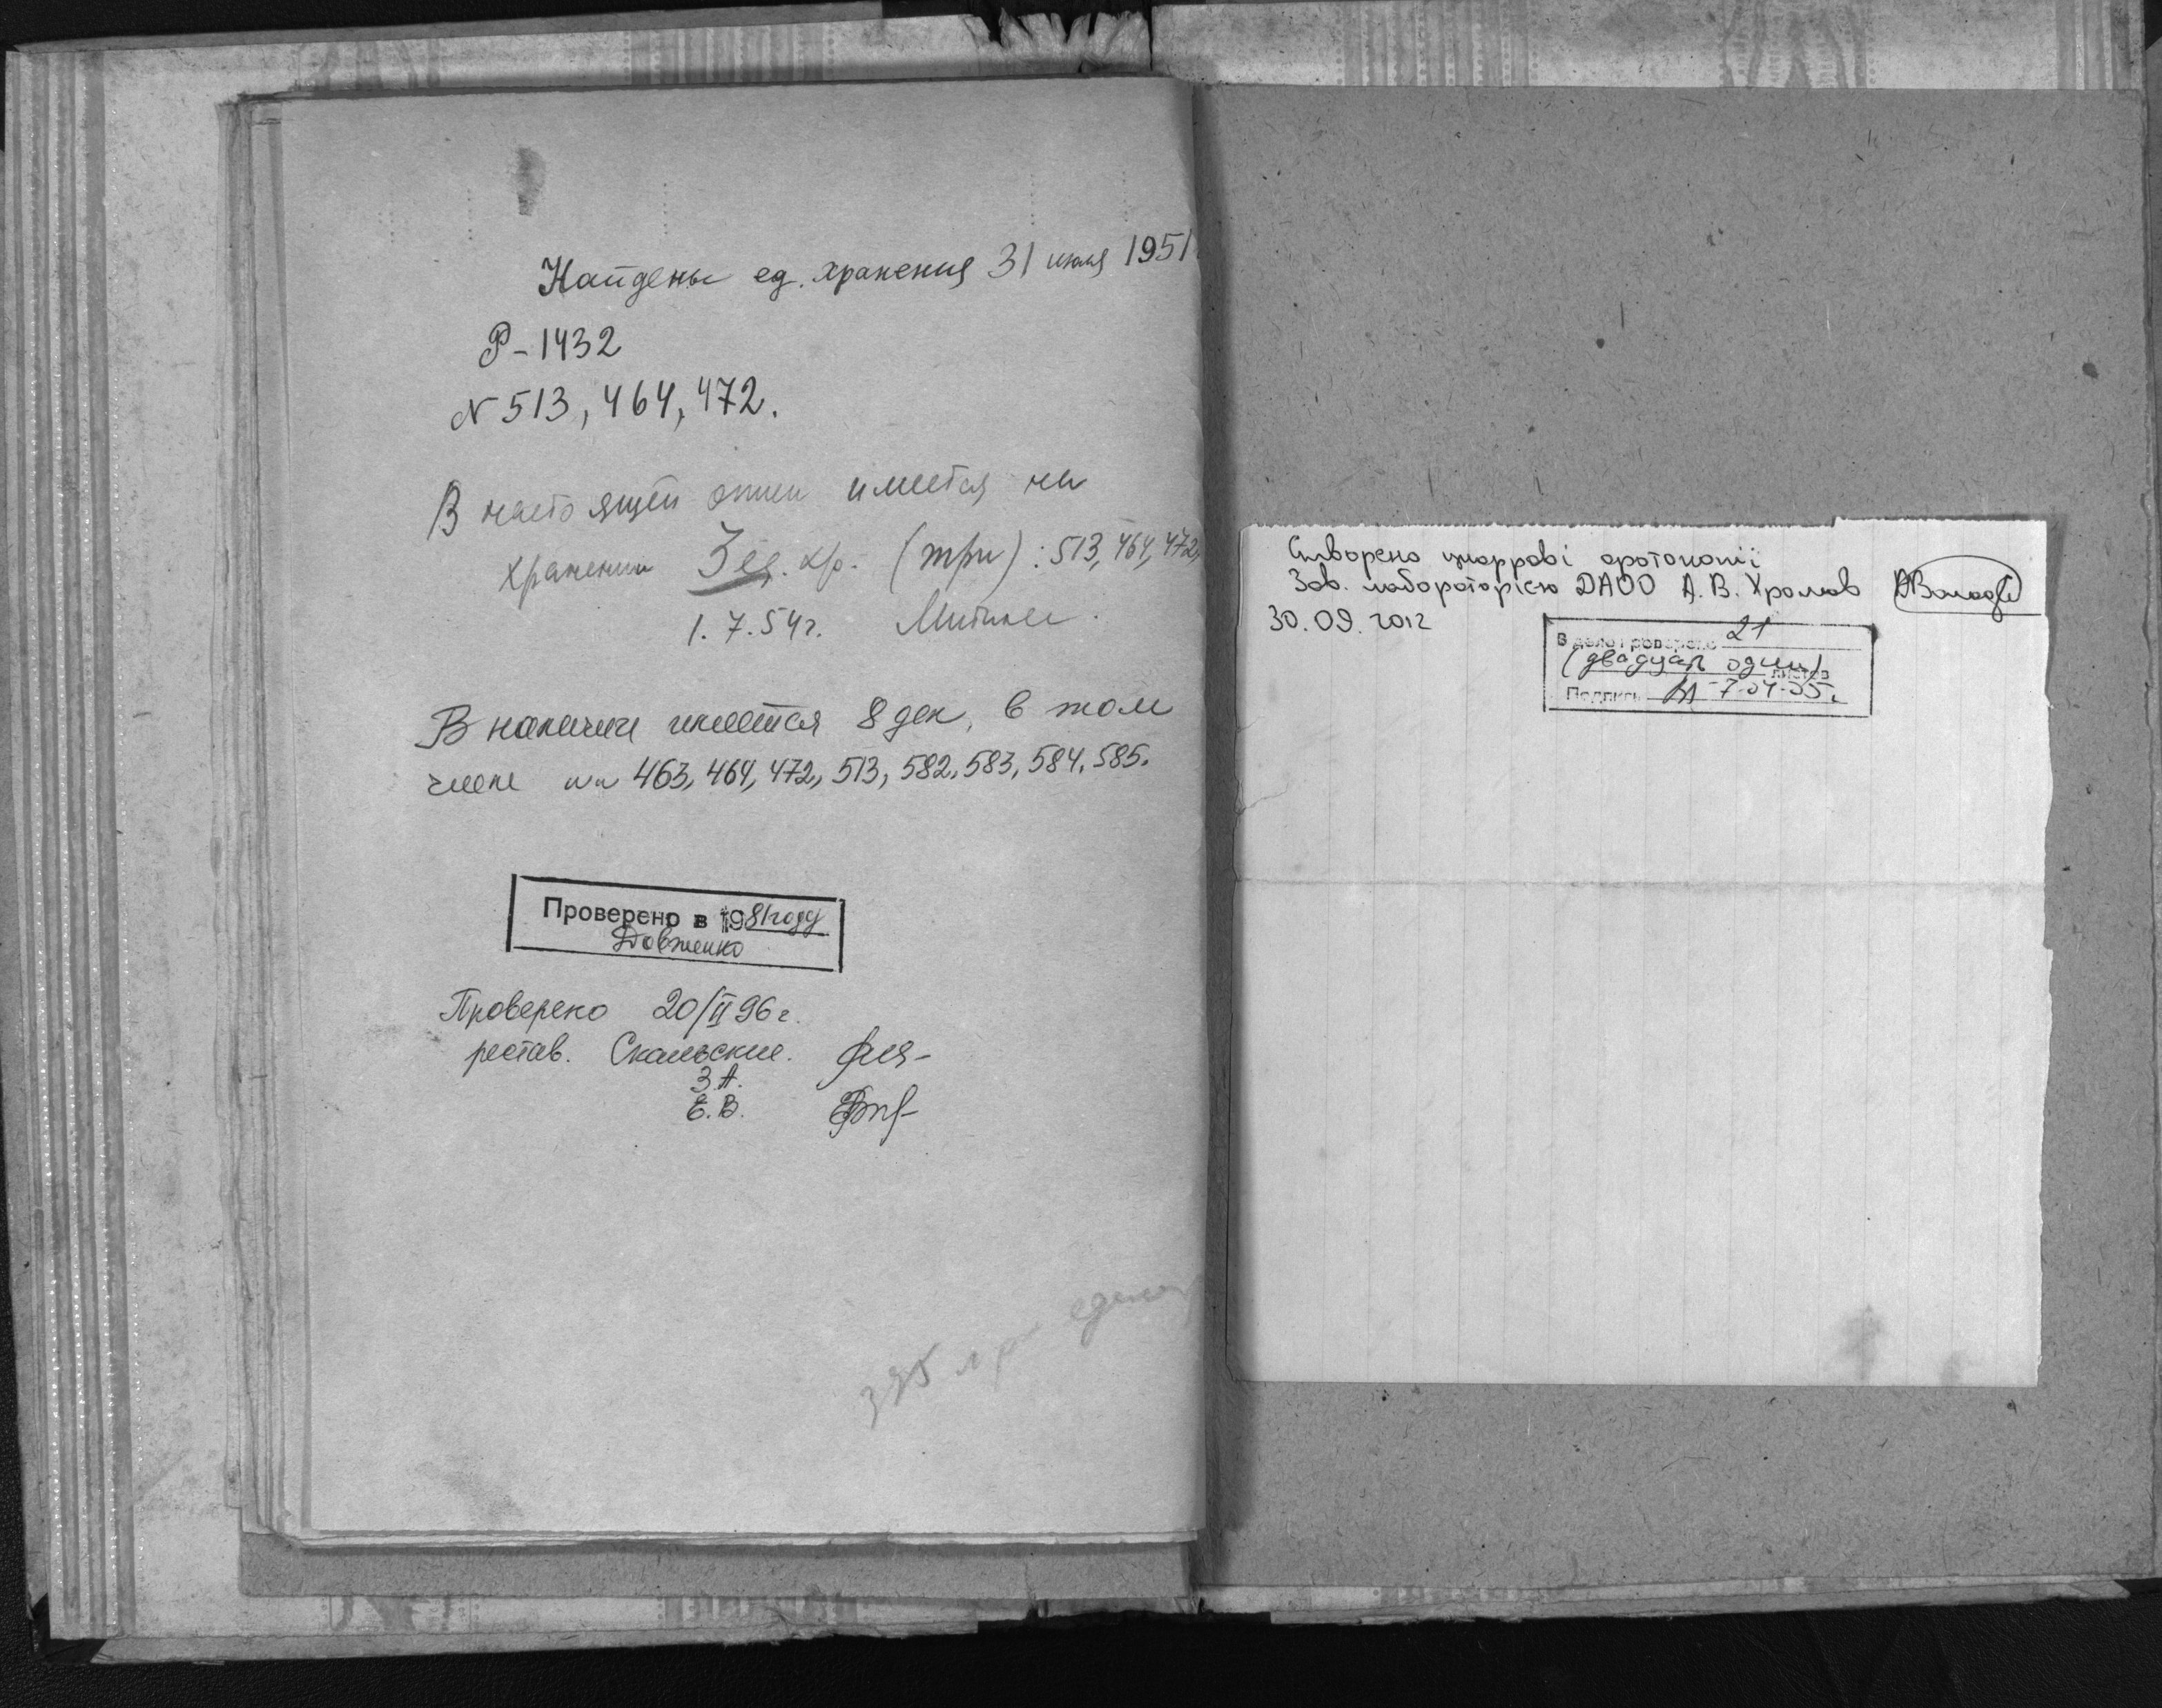 Найдены ед. хранения 31 июля 1951
Р-1432
N 513, 464, 472.
В настоящей описи имеется на
хранении 3 ед. хр. (три): 513, 464, 472,
1. 7. 54 г.
В наличии имеется 8 дел, в том
числе 463, 464, 472, 513, 582, 583, 584, 585.
Проверено в 1981 году
Довженко
Проверено 20/II 96 г.
рестав. Скальские.
З.А.
Е.В.
Створено цифрові фотокопії
Зав. лабораторією ДАОО А. В. Хромов
30.09.2012
В деле проверено 21
(двадцать один) листов
Подпись 7-04-05 г.